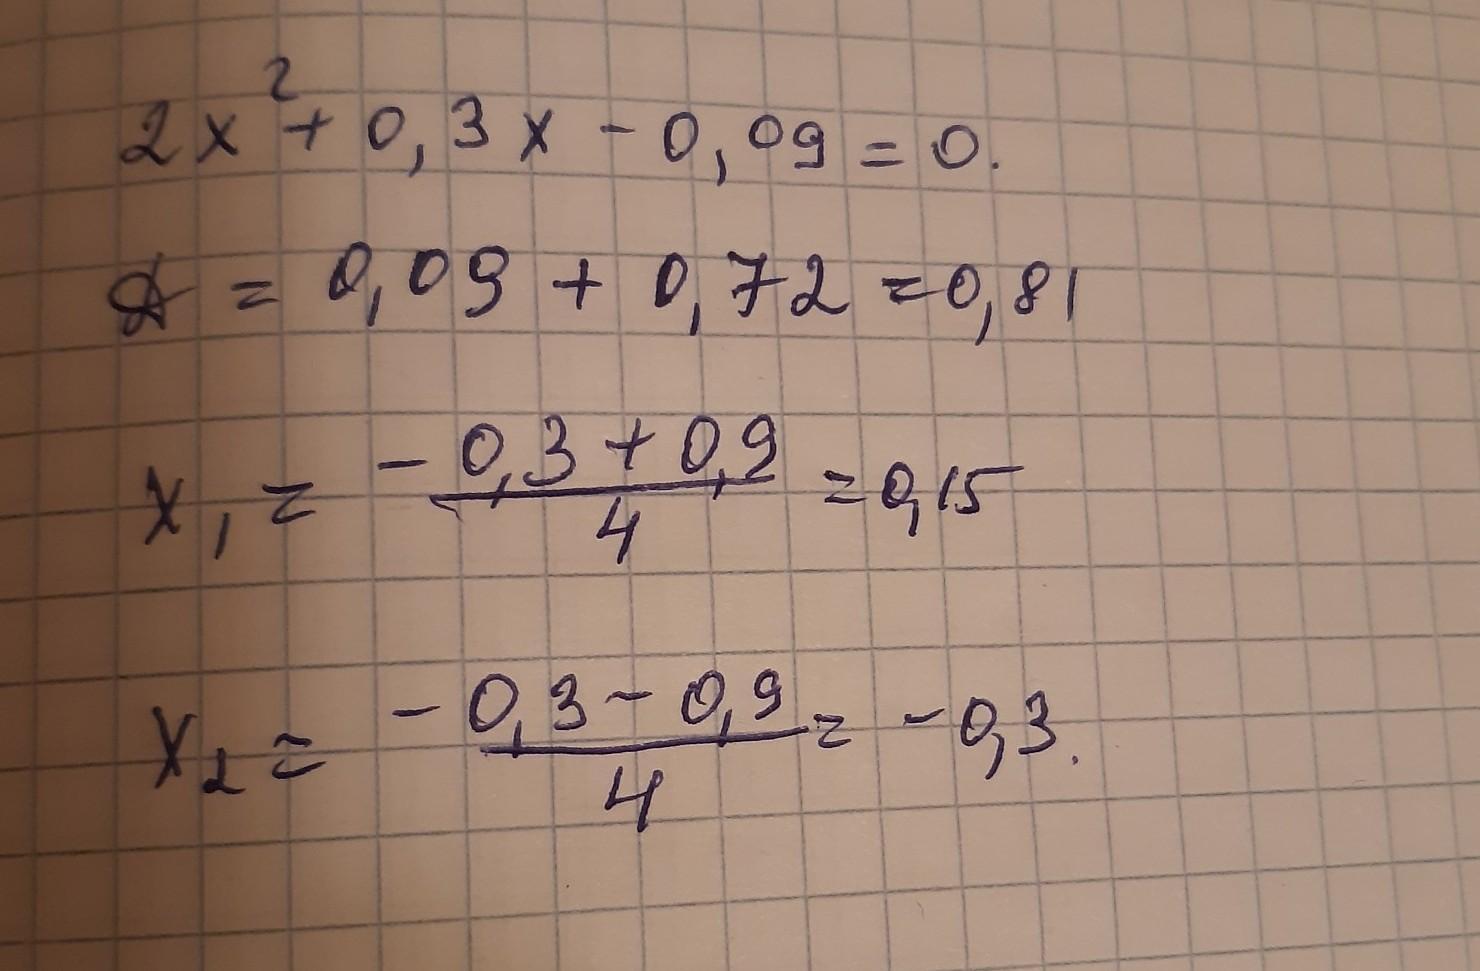 2x² + 0,3x - 0,09 = 0.
D = 0,09 + 0,72 = 0,81
x₁ = (-0,3 + 0,9)/4 = 0,15
x₂ = (-0,3 - 0,9)/4 = -0,3.